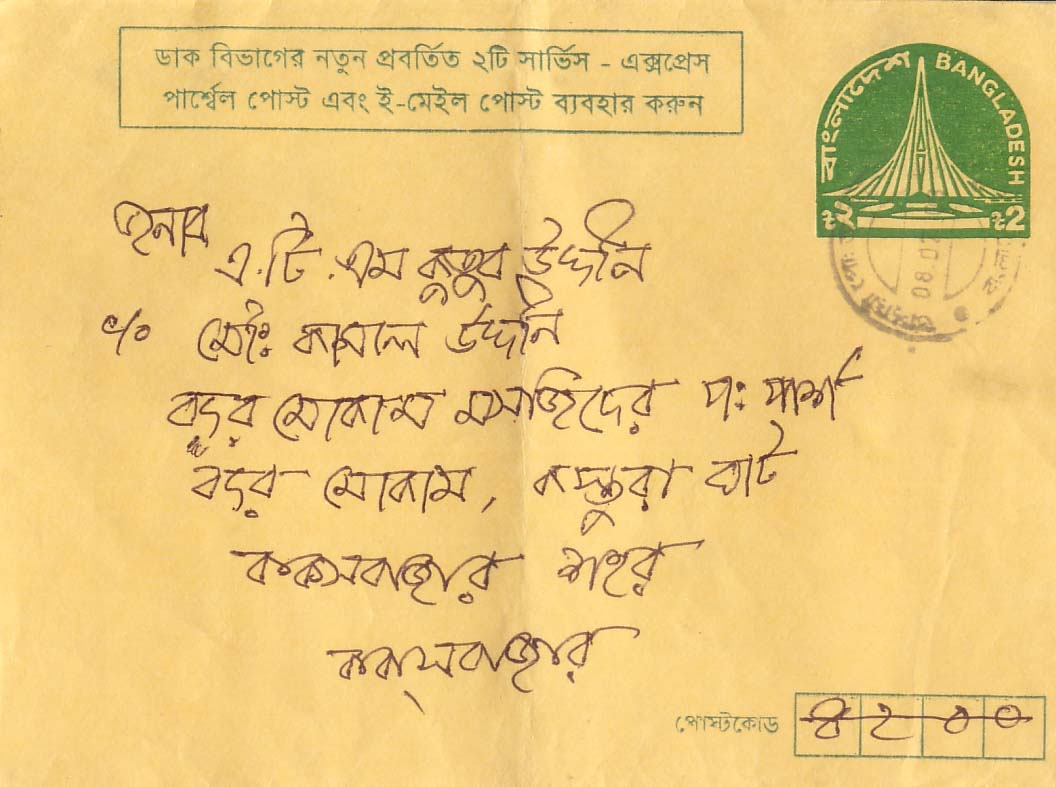 ডাক বিভাগের নতুন প্রবর্তিত ২টি সার্ভিস - এক্সপ্রেস
পার্শ্বেল পোস্ট এবং ই-মেইল পোস্ট ব্যবহার করুন
বাংলাদেশ BANGLADESH
৳২ ৳2
08.0
জনাব
এ.টি.এম কুতুব উদ্দীন
C/o মোঃ কামাল উদ্দীন
বদর মোকাম মসজিদের প: পার্শ
বদর মোকাম, কস্তুরা ঘাট
ককসবাজার শহর
ককসবাজার
পোস্টকোড ৪২০০